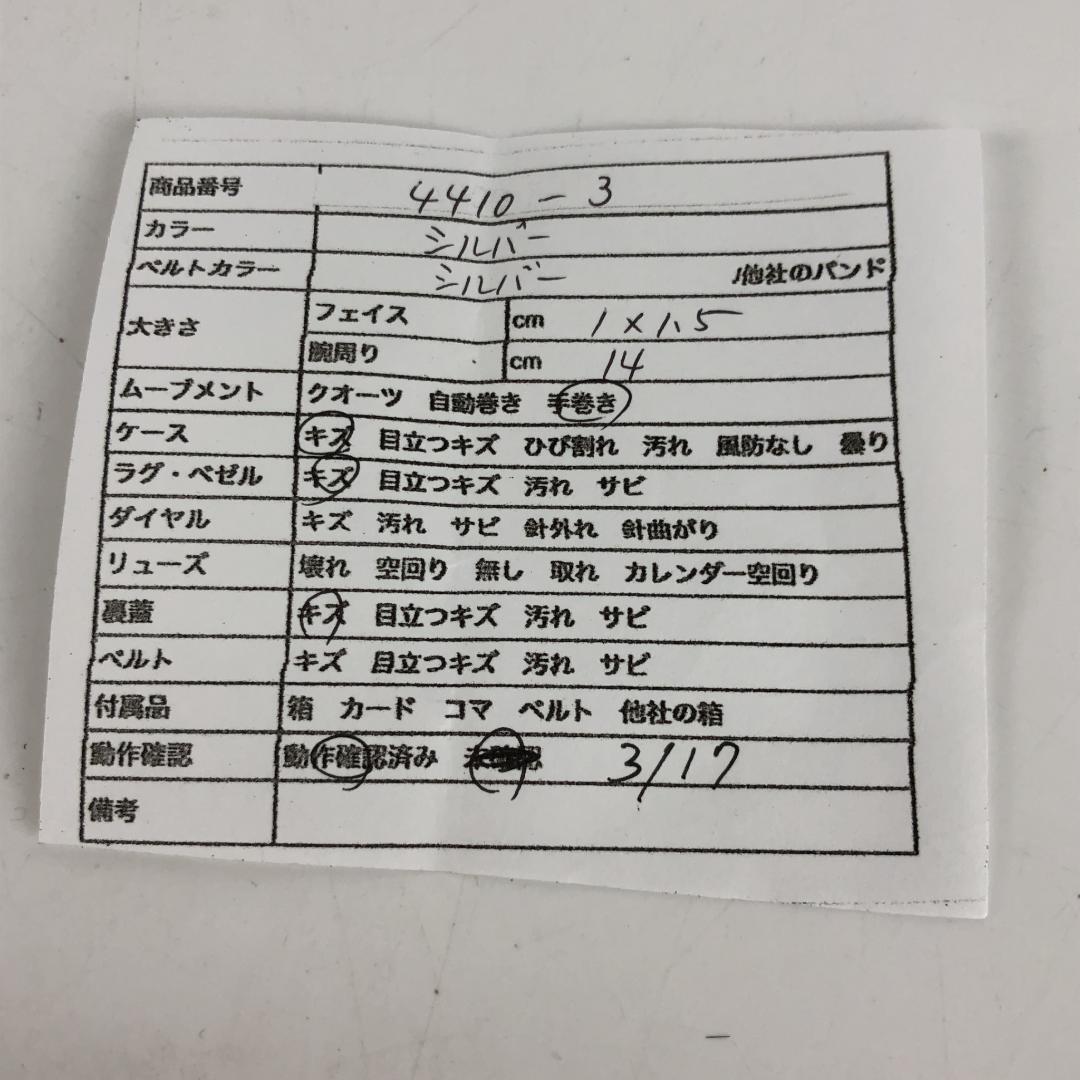 商品番号 4410-3
カラー シルバー
ベルトカラー シルバー /他社のバンド
大きさ フェイス cm 1×1.5
腕周り cm 14
ムーブメント クオーツ 自動巻き 手巻き
ケース キズ 目立つキズ ひび割れ 汚れ 風防なし 曇り
ラグ・ベゼル キズ 目立つキズ 汚れ サビ
ダイヤル キズ 汚れ サビ 針外れ 針曲がり
リューズ 壊れ 空回り 無し 取れ カレンダー空回り
裏蓋 キズ 目立つキズ 汚れ サビ
ベルト キズ 目立つキズ 汚れ サビ
付属品 箱 カード コマ ベルト 他社の箱
動作確認 動作確認済み 未確認 3/17
備考